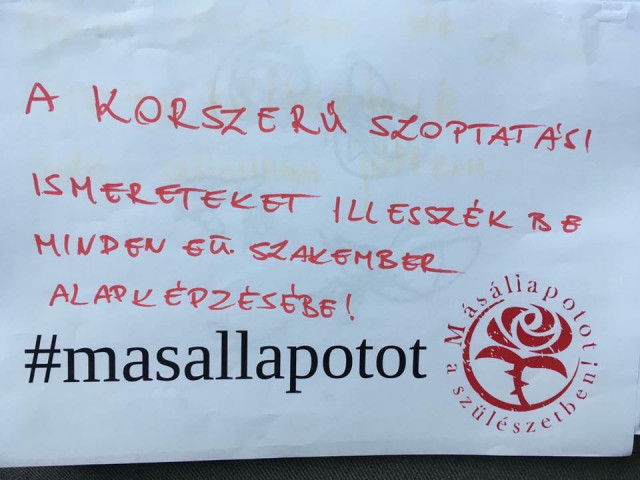 A KORSZERŰ SZOPTATÁSI
ISMERETEKET ILLESSZÉK BE
MINDEN EÜ. SZAKEMBER
ALAPKÉPZÉSÉBE!
#masallapotot
Másállapotot
a szülészetben!